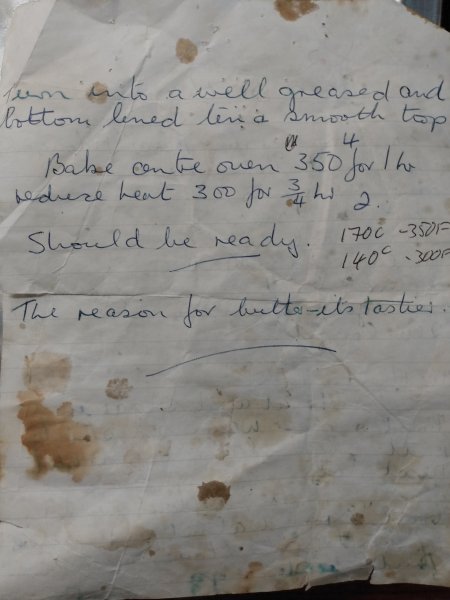 turn into a well greased and
bottom lined tin a smooth top
4
Bake centre oven 350 for 1 hr
reduce heat 300 for 3/4 hr 2.
Should be ready. 170C - 350F
140C - 300F
The reason for butter - its tastier.